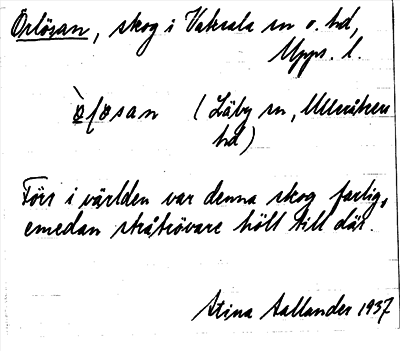 Örlösan, skog i Vaksala sn o. hd,
Upps. l.
(Läby sn, Ulleråkers
hd)
Förr i världen var denna skog farlig,
emedan stråtrövare höllt till där.
Stina Aallander 1937